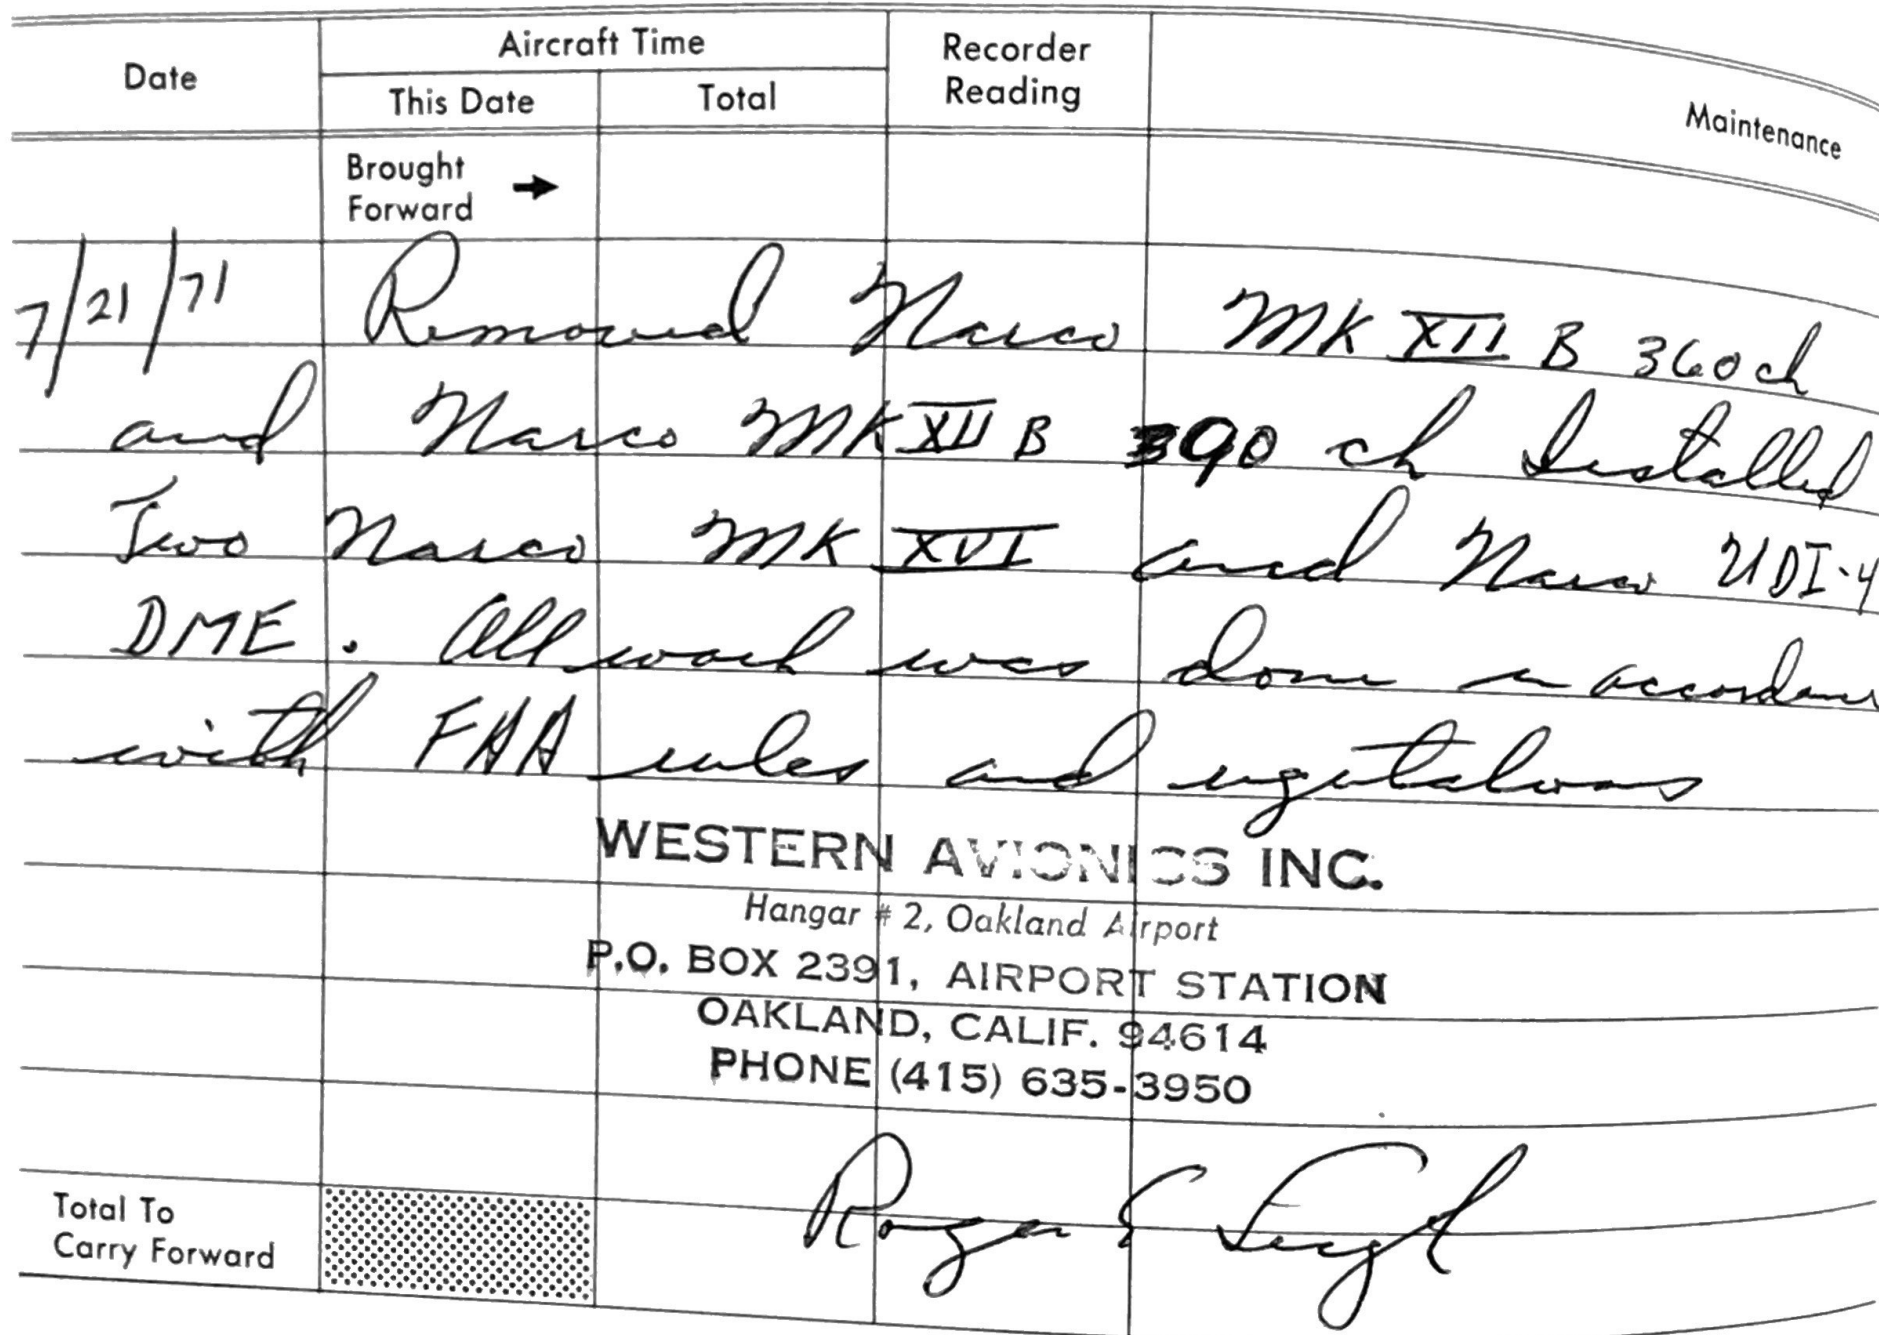 Date
Aircraft Time
This Date
Total
Recorder
Reading
Maintenance
Brought
Forward
7/21/71 Removed Narco MK XII B 360 ch
and Narco MK XII B 390 ch Installed
Two Narco MK XVI and Narco UDI-4
DME. All work was done in accordance
with FAA rules and regulations
WESTERN AVIONICS INC.
Hangar # 2, Oakland Airport
P.O. BOX 2391, AIRPORT STATION
OAKLAND, CALIF. 94614
PHONE (415) 635-3950
Roger E
Total To
Carry Forward